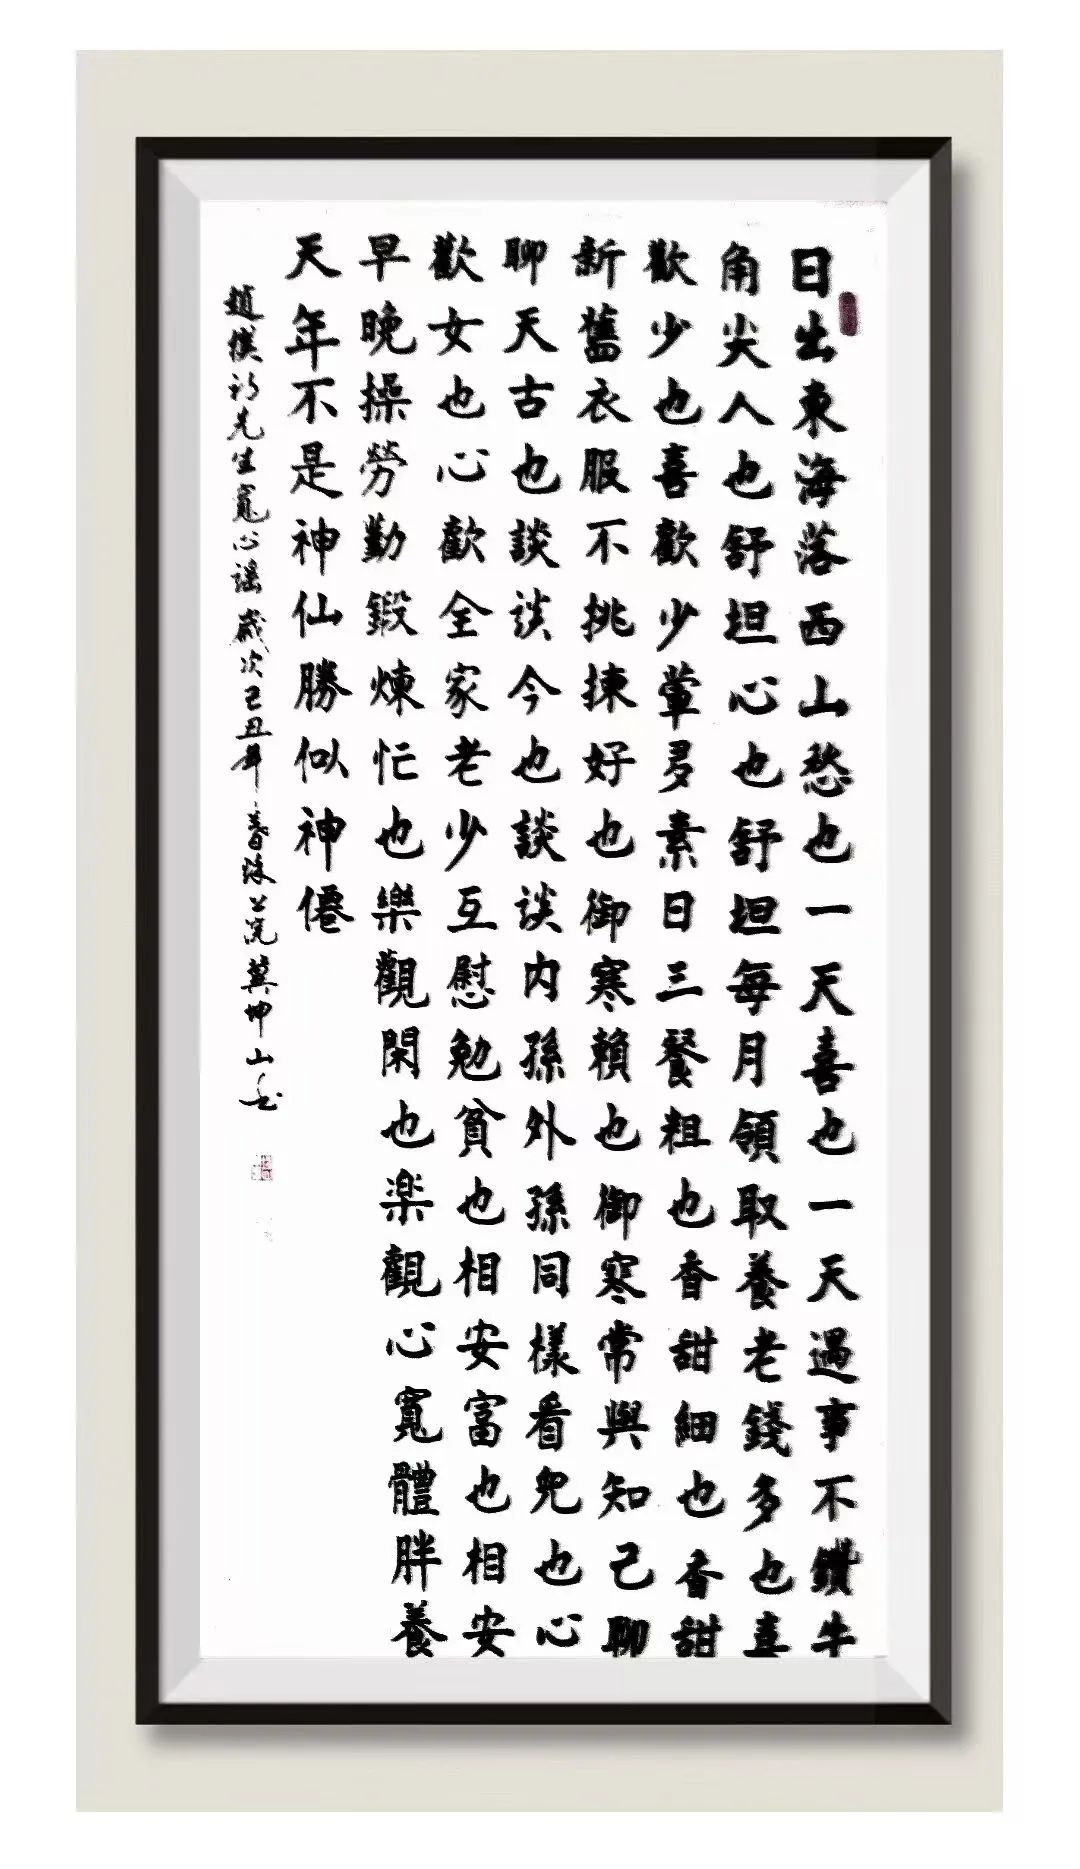 日出東海落西山愁也一天喜也一天遇事不鑽牛
角尖人也舒坦心也舒坦每月領取養老錢多也喜
歡少也喜歡少葷多素日三餐粗也香甜細也香甜
新舊衣服不挑揀好也御寒賴也御寒常與知己聊
聊天古也談談今也談談内孫外孫同樣看兒也心
歡女也心歡全家老少互慰勉貧也相安富也相安
早晚操勞勤鍛煉忙也樂觀閑也楽觀心寬體胖養
天年不是神仙勝似神僊
趙樸初先生寬心謠歲次己丑年春
坤山書